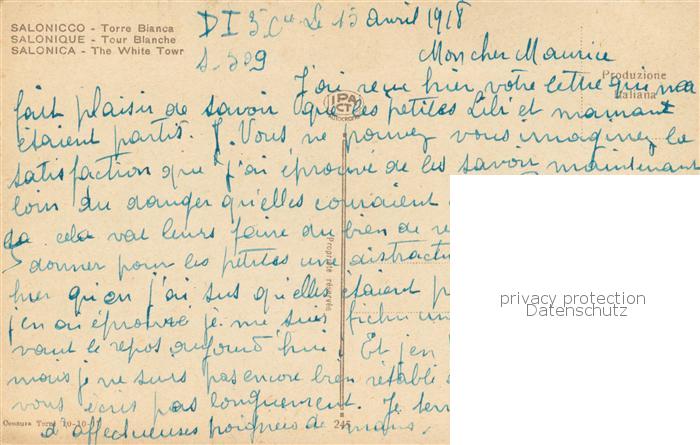 SALONICCO - Torre Bianca
SALONIQUE - Tour Blanche
SALONICA - The White Towr
Le 13 avril 1918
S. 509
Mon cher Maurice
Produzione
Italiana
J'ai reçu hier votre lettre qui m'a
fait plaisir de savoir que les petites Lili et maman
étaient partis. Vous ne pouvez vous imaginez la
satisfaction que j'ai éprouvé de les savoir maintenant
loin du danger qu'elles couraient
cela vat leurs faire du bien de
donner pour les petites une distract
hier qu'en j'ai sus qu'elles étaient
j'en ai éprouvé je me suis fichu un
vant le repos aujourd'hui. Et j'en
mais je ne suis pas encore bien rétabli
vous écris pas longuement. Je ter
d'affectueuses poignées de mains.
Proprieté réservée
Censura Torre
245
privacy protection
Datenschutz